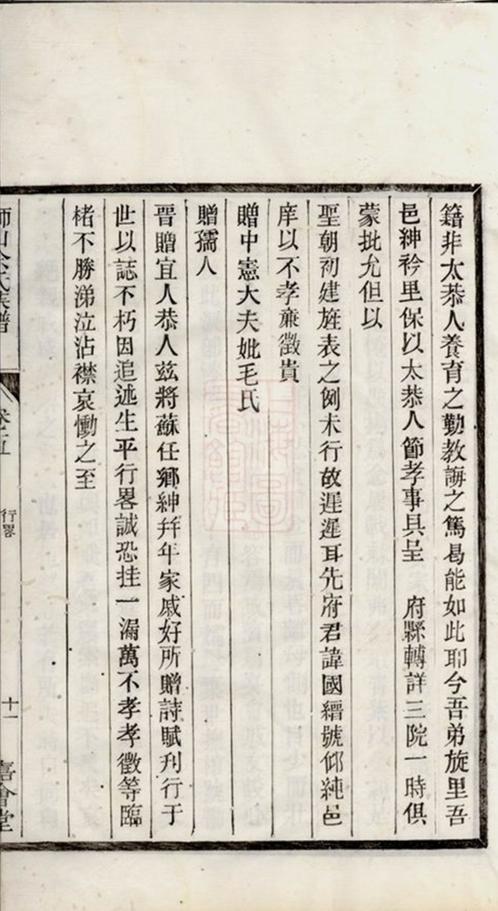 籍非太恭人養育之勤教誨之篤曷能如此耶今吾弟旋里吾
邑紳衿里保以太恭人節孝事具呈　府縣轉詳三院一時俱
蒙批允但以
聖朝初建旌表之例未行故遲遲耳先府君諱國縉號仰純邑
庠以不孝廉徵貴
贈中憲大夫妣毛氏
贈孺人
晉贈宜人恭人茲將蘇任鄉紳幷年家戚好所贈詩賦刋行于
世以誌不朽因追述生平行畧誠恐挂一漏萬不孝孝徵等臨
楮不勝涕泣沾襟哀慟之至
氏族譜
卷之五
行畧
十一
嘉會堂